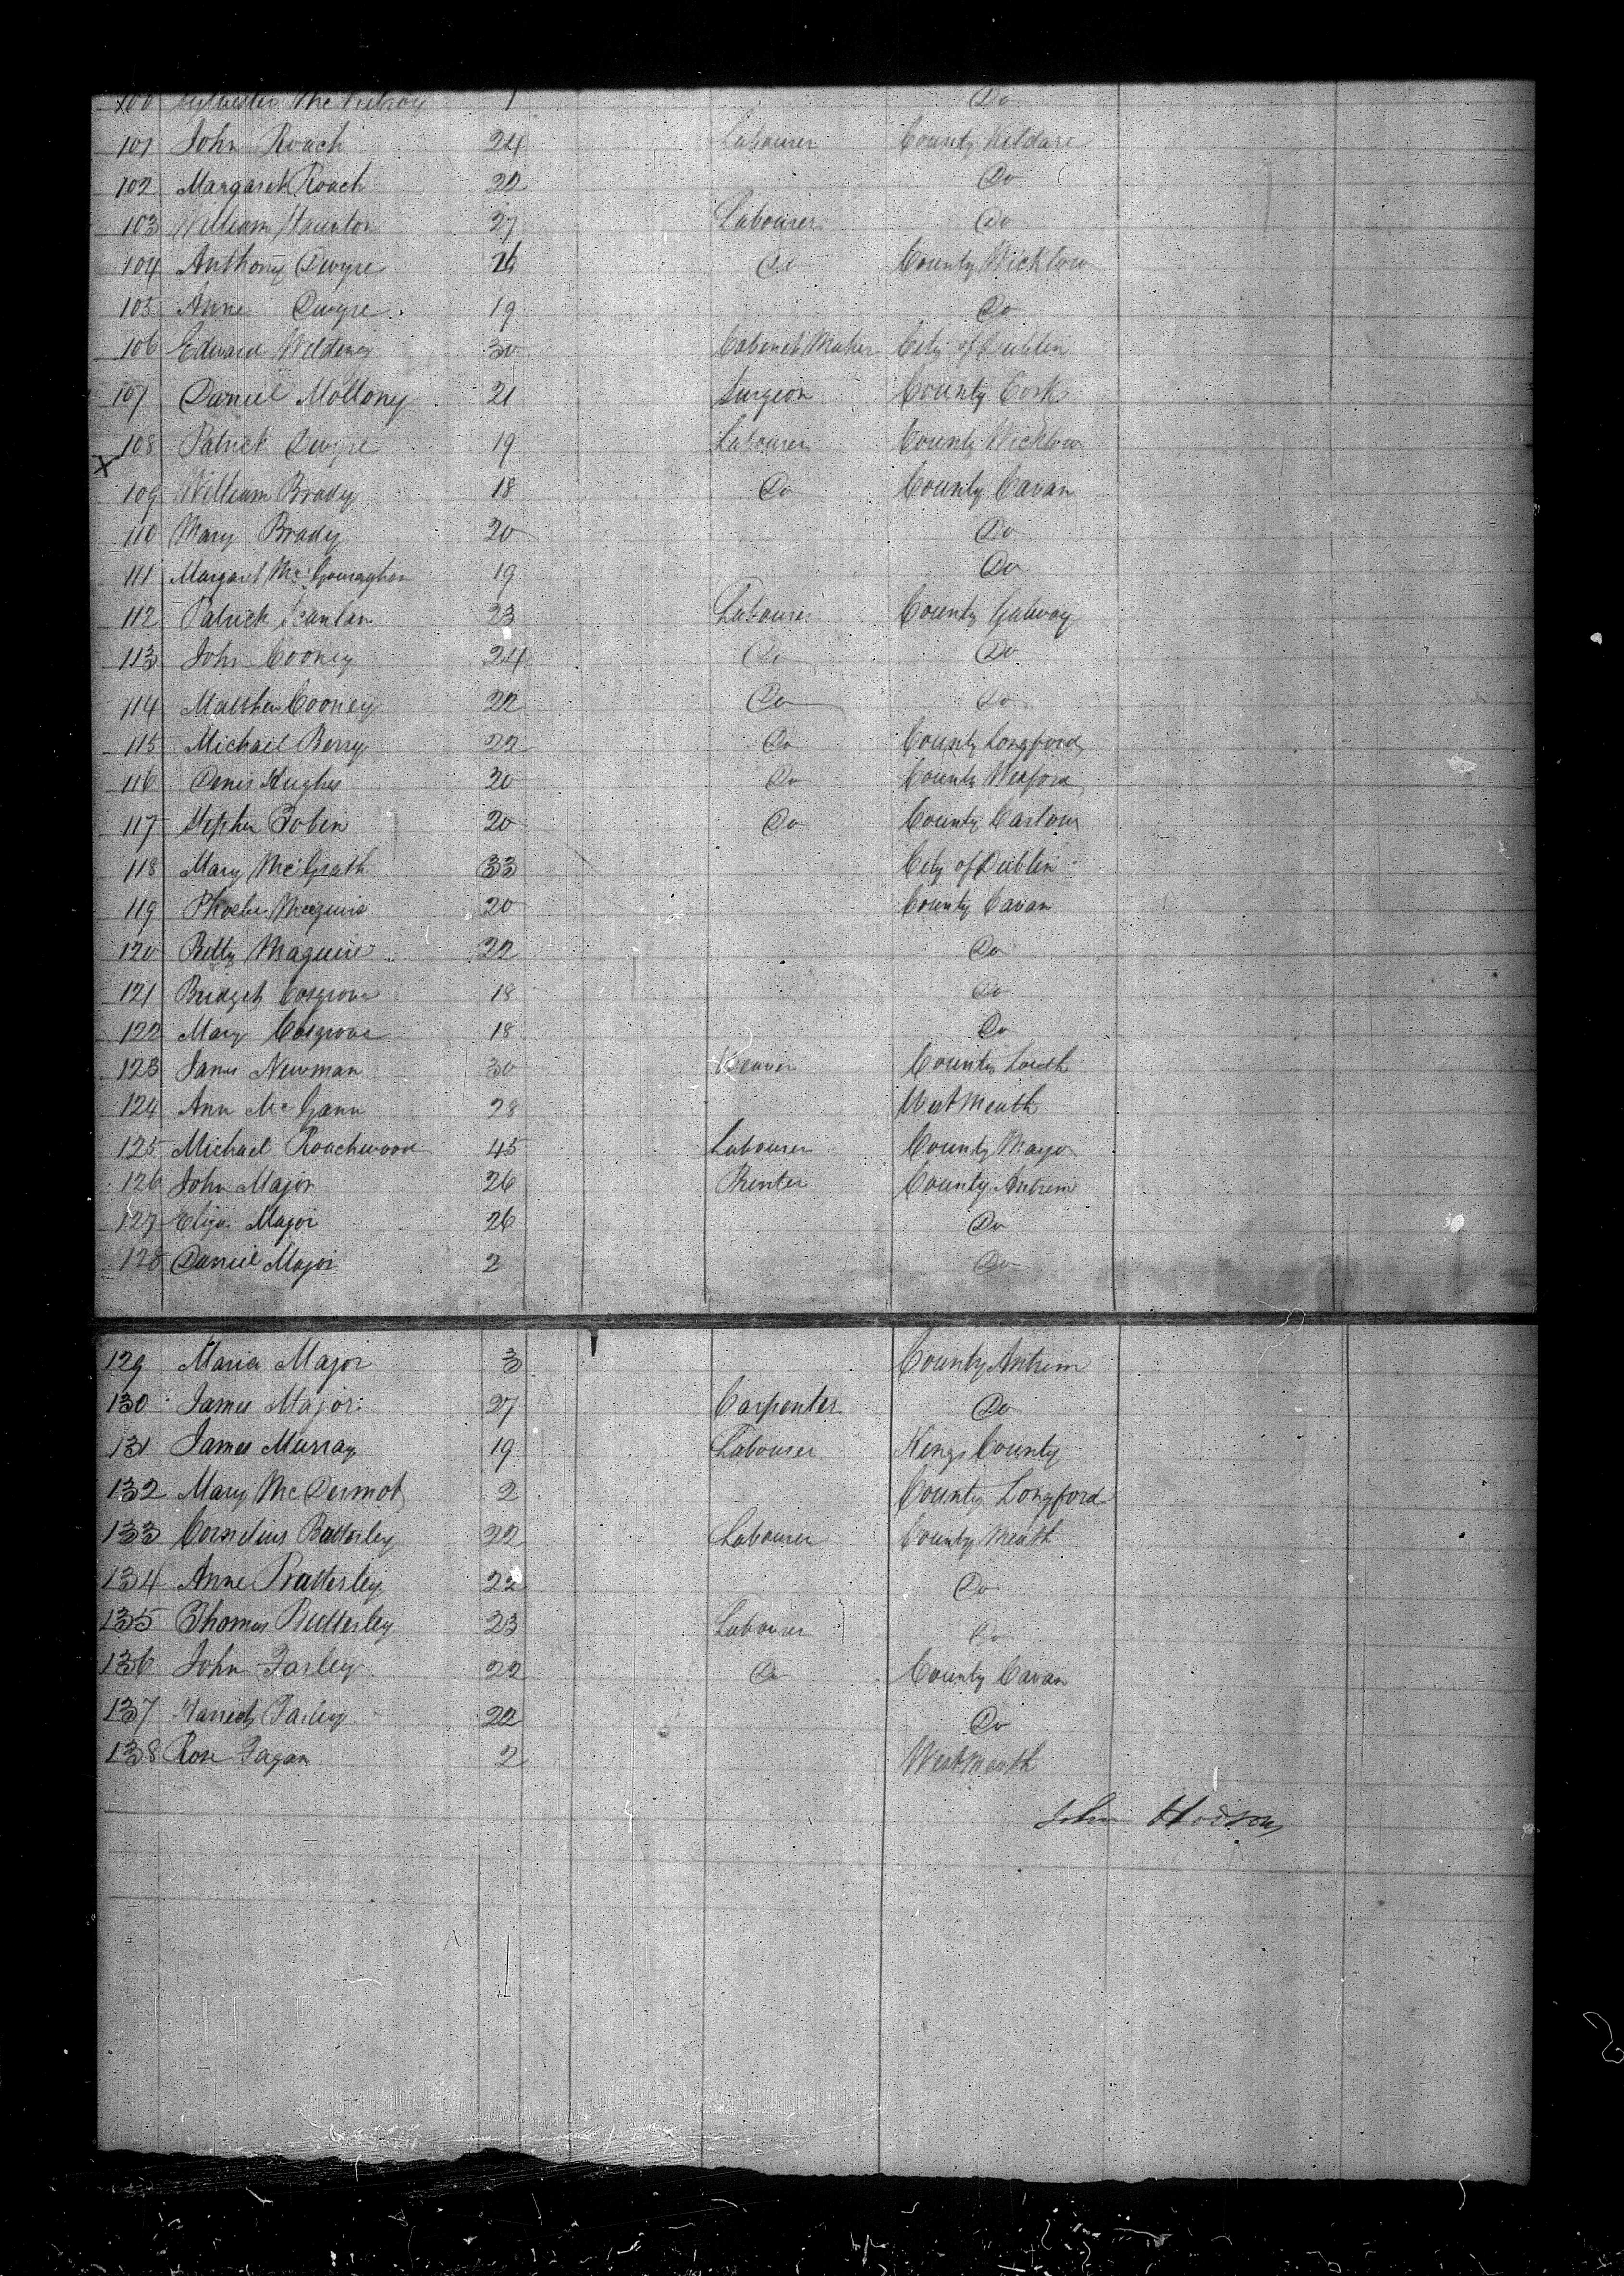 100 Sylvester Mc 1 Do
101 John Roach 24 Labourer County Kildare
102 Margaret Roach 22 Do
103 William Staunton 27 Labourer Do
104 Anthony Dwyre 26 Do County Wicklow
105 Anne Dwyre 19 Do
106 Edward Wilding 30 Cabinet Maker City of Dublin
107 Daniel Mollony 21 Surgeon County Cork
108 Patrick Dwyre 19 Labourer County Wicklow
X 109 William Brady 18 Do County Cavan
110 Mary Brady 20 Do
111 Margaret McGouraghan 19 Do
112 Patrick Scanlan 23 Labourer County Galway
113 John Cooney 24 Do Do
114 Matthew Cooney 22 Do Do
115 Michael Berry 22 Do County Longford
116 Denis Hughes 20 Do County Wexford
117 Stephen Tobin 20 Do County Carlow
118 Mary McGrath 33 City of Dublin
119 Phoebe Maguire 20 County Cavan
120 Betty Maguire 22 Do
121 Bridget Cosgrove 18 Do
122 Mary Cosgrove 18 Do
123 James Newman 30 Weaver County Louth
124 Ann McGann 28 West Meath
125 Michael Roachwood 45 Labourer County Mayo
126 John Major 26 Printer County Antrim
127 Eliza Major 26 Do
128 Daniel Major 2 Do
129 Maria Major 3 County Antrim
130 James Major 27 Carpenter Do
131 James Murray 19 Labourer Kings County
132 Mary McDermot 2 County Longford
133 Cornelius Batterley 22 Labourer County Meath
134 Anne Batterley 22 Do
135 Thomas Butterley 23 Labourer Do
136 John Farley 22 Do County Cavan
137 Farley 22 Do
138 Rose Fagan 2 Westmeath
John Hodson